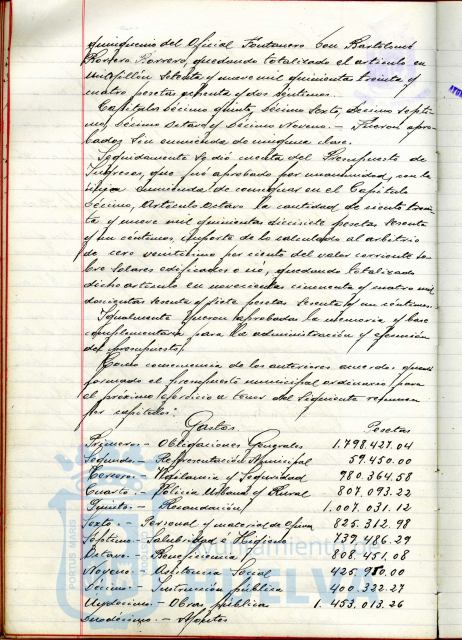 quinquenio del Oficial Fontanero Don Bartolomé
Borrero Borrero, quedando totalizado el artículo en
un millón setenta y nueve mil quinientas treinta y
cuatro pesetas ochenta y dos céntimos.
Capítulos Décimo quinto, Décimo Sexto, Décimo Septi-
mo, Décimo Octavo y Décimo Noveno. - Fueron apro-
bados sin enmienda de ninguna clase.
Seguidamente se dió cuenta del Presupuesto de
Ingresos, que fué aprobado por unanimidad, con la
enmienda de consignar en el Capítulo
Décimo, Artículo Octavo la cantidad de ciento trein-
ta y nueve mil quinientas diecisiete pesetas sesenta
y un céntimos, importe de lo calculado al arbitrio
de cero veintiuno por ciento del valor corriente so-
bre solares edificados o nó, quedando totalizado
dicho artículo en novecientas cincuenta y cuatro mil
doscientas sesenta y siete pesetas sesenta y un céntimos.
Igualmente fueron aprobadas la memoria y bases
complementarias para la administración y ejecución
del presupuesto.
Como consecuencia de los anteriores acuerdos quedó
formado el presupuesto municipal ordinario para
el próximo ejercicio a tenor del siguiente resumen
por capítulos:
Gastos Pesetas
Primero.- Obligaciones Generales 1.798.427.04
Segundo.- Representación Municipal 59.450.00
Tercero.- Vigilancia y Seguridad 980.364.58
Cuarto.- Policia Urbana y Rural 807.093.22
Quinto.- Recaudación 1.007.031.12
Sexto.- Personal y material de Oficina 825.312.98
Séptimo.- Salubridad e Higiene 739.486.29
Octavo.- Beneficencia 808.451.08
Noveno.- Asistencia Social 425.950.00
Décimo.- Instrucción pública 400.322.27
Undécimo.- Obras públicas 1.453.013.26
Duodécimo.- Montes
PORTUS MARIS
Ayuntamiento
HUELVA